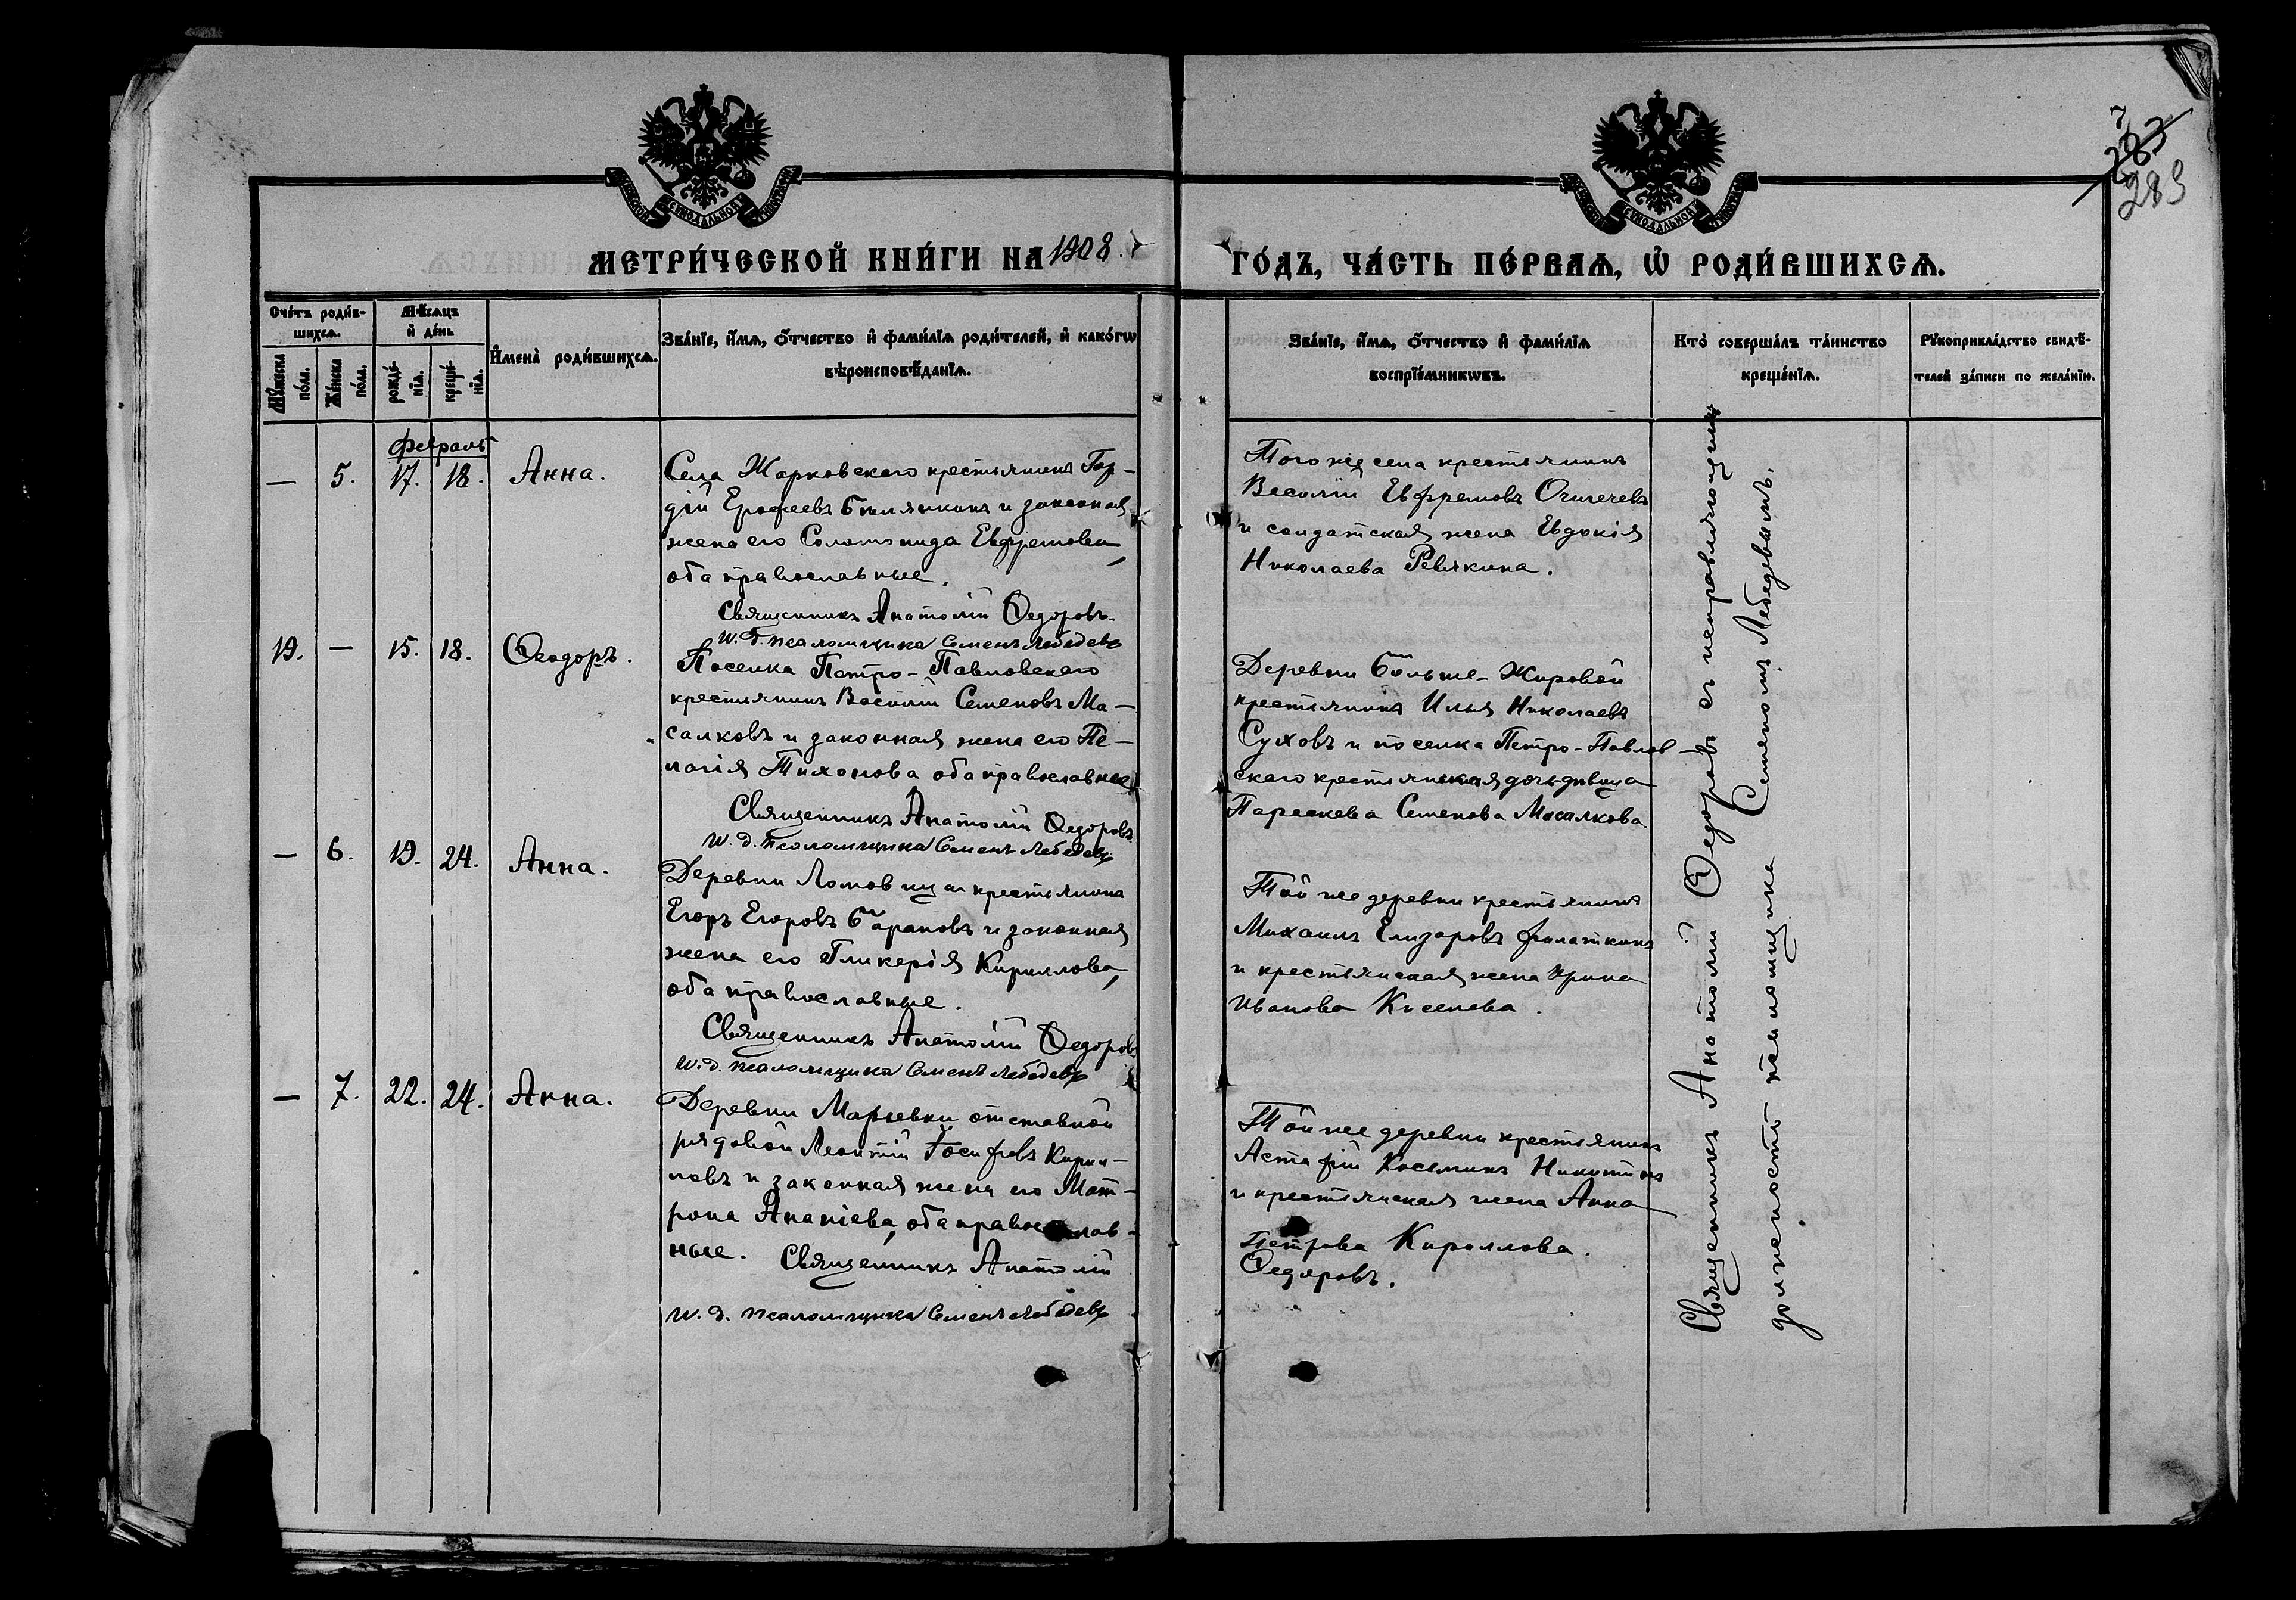 7
283
283
МЕТРИ́ЧЕСКОЙ КНИ́ГИ НА 1908
ГО́ДЪ, ЧА́СТЬ ПЕ́РВАѦ, Ѡ҆ РОДИ́ВШИХСѦ.
Сче́тъ роди́в-
шихсѧ.
Мѣ́сѧцъ
и҆ де́нь
Мꙋ́жеска по́ла.
Же́нска по́ла.
рожде́-
нїѧ.
креще́-
нїѧ.
И҆мена̀ роди́вшихсѧ.
Зва́нїе, и҆́мѧ, ѻ҆́тчество и҆ фами́лїѧ роди́телей, и҆ како́гѡ
вѣроисповѣ́данїѧ.
Зва́нїе, и҆́мѧ, ѻ҆́тчество и҆ фами́лїѧ
воспрїе́мникѡвъ.
Кто̀ соверша́лъ та́инство
креще́нїѧ.
Рꙋкоприкла́дство свидѣ́-
телей за́писи по жела́нїю.
Февраль
— 5. 17. 18. Анна.
Села Жарковскаго крестьянинъ Гор-
дій Ерофеевъ Билянкинъ и законная
жена его Соломонида Евфремова,
оба православные.
Священникъ Анатолій Ѳедоровъ.
И. д. псаломщика Семенъ Лебедевъ
Того же села крестьянинъ
Василій Евфремовъ
и солдатская жена Евдокія
Николаева Ревякина.
19. — 15. 18. Ѳеодоръ.
Поселка Петро-Павловскаго
крестьянинъ Василій Семеновъ Ма-
салковъ и законная жена его Пе-
лагія Тихонова оба православные
Священникъ Анатолій Ѳедоровъ
И. д. псаломщика Семенъ Лебедевъ
Деревни Больше-Жировой
крестьянинъ Илья Николаевъ
Суховъ и поселка Петро-Павлов-
скаго крестьянская дочь-девица
Параскева Семенова Масалкова
— 6. 19. 24. Анна.
Деревни крестьянинъ
Егоръ Егоровъ Барановъ и законная
жена его Гликерія Кириллова,
оба православные.
Священникъ Анатолій Ѳедоровъ
И. д. псаломщика Семенъ Лебедевъ
Той же деревни крестьянинъ
Михаилъ Елизаровъ Филаткинъ
и крестьянская жена Ирина
Иванова Киселева.
— 7. 22. 24. Анна.
Деревни Марьевки отставной
рядовой Леонтій Іосифовъ Кирил-
ловъ и законная жена его Мат-
рона Ананіева, оба православ-
ные. Священникъ Анатолій
И. д. псаломщика Семенъ Лебедевъ
Той же деревни крестьянинъ
Астафій Косьминъ Никитинъ
и крестьянская жена Анна
Петрова Кириллова.
Ѳедоровъ.
Священникъ Анатолій Ѳедоровъ съ исправляющимъ
должность псаломщика Семеномъ Лебедевымъ.